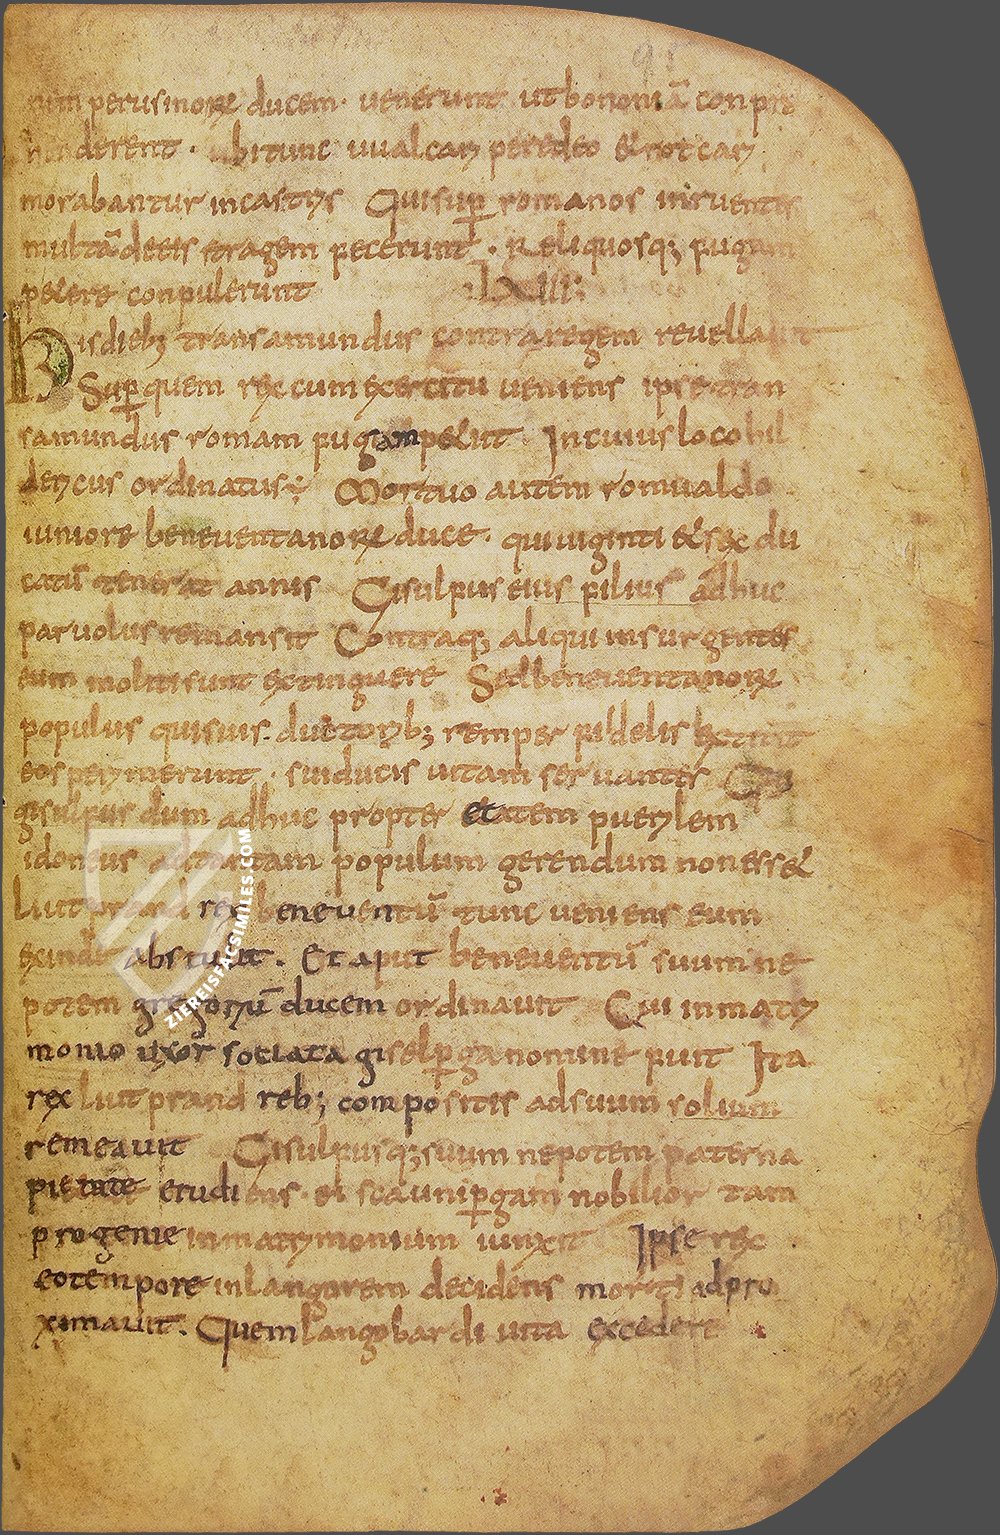 91
num perusinorum ducem· venerunt ut bononiā conpre
henderent· ubi tunc uualcari peredeo & rotcari
morabantur in castris Qui sup romanos inruentis
multā de eis stragem fecerunt· Reliquosq; fugam
petere conpulerunt
LVIIII:
His dieb; transamundus contra regem reuellauit
Sup quem rex cum exercitu ueniens ipse tran
samundus romam fugam petiit In cuius loco hil
dericus ordinatus; Mortuo autem romualdo
iuniore beneuentanorum duce· qui uiginti & sex du
catū tenuerat annis Gisulfus eius filius adhuc
paruolus remansit Contra q; aliqui insurgentes
eum moliti sunt extinguere Sed beneuentanorum
populus qui suis· ductorib; semper fidelis extitit
eos perimerunt· sui ducis uitam seruantes Qui
gisulfus dum adhuc propter etatem puerilem
idoneus ad tantam populum gerendum non ess&
Liutprand rex beneuentū tunc ueniens eum
exinde abstulit. Et aput beneuentū suum ne
potem gregoriū ducem ordinauit Cui in matri
monio uxor sociata giselperga nomine fuit Ita
rex liutprand reb; compositis ad suum solium
remeauit Gisulfusq; suum nepotem paterna
pietate erudiens· ei scaunipergam nobilior tam
progenie in matrimonium iunxit Ipse rex
eo tempore in langorem decidens morti adpro
ximauit. Quem langobardi uita excedere
ZIEREISFACSIMILES.COM